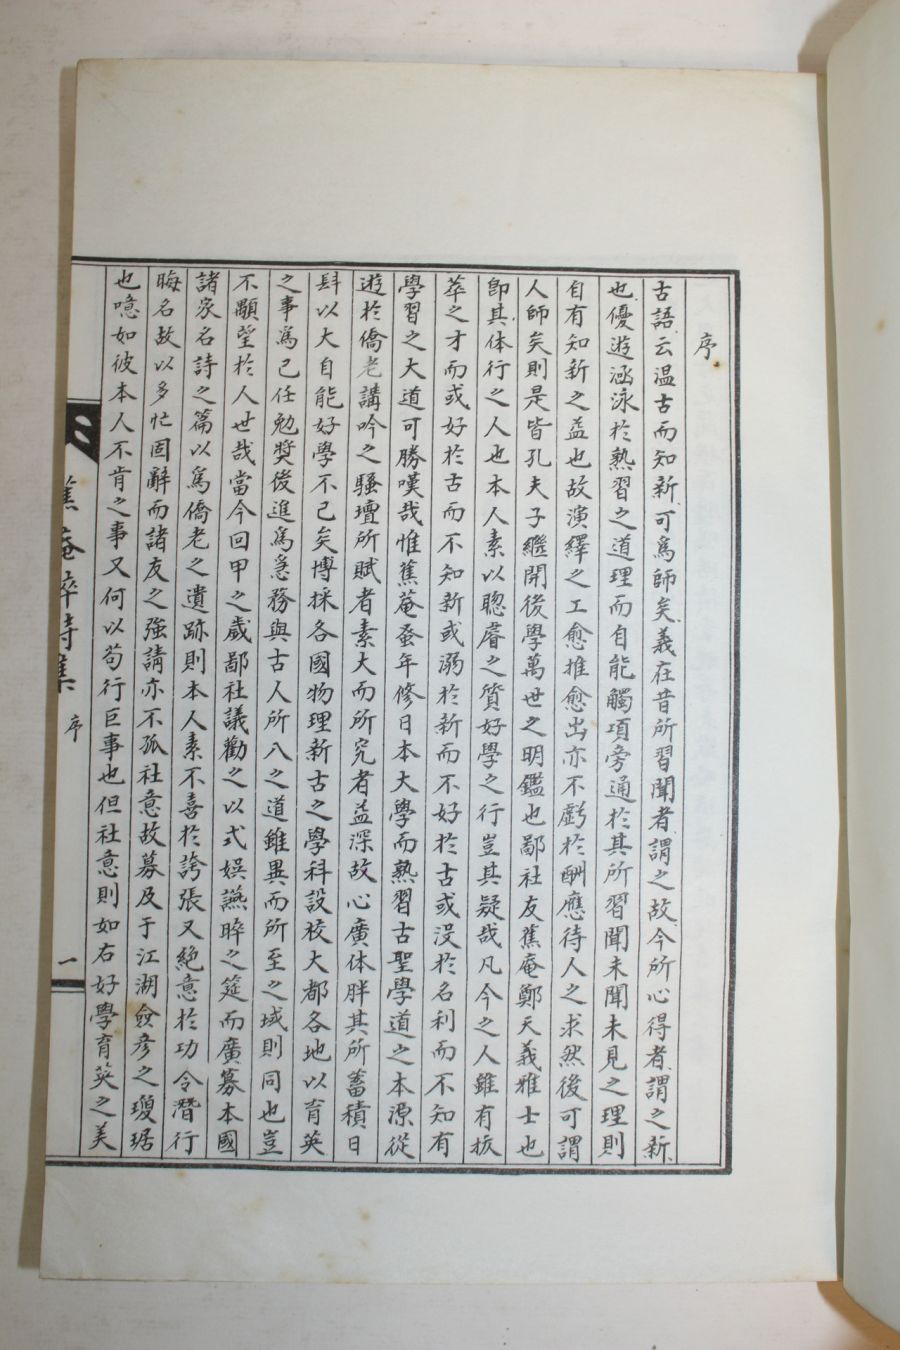 序
古語云温古而知新可爲師矣義在昔所習聞者謂之故今所心得者謂之新
也優遊涵泳於熟習之道理而自能觸項旁通於其所習聞未聞未見之理則
自有知新之益也故演繹之工愈推愈出亦不虧於酬應待人之求然後可謂
人師矣則是皆孔夫子繼開後學萬世之明鑑也鄙社友蕉庵鄭天義雅士也
卽其体行之人也本人素以聰睿之質好學之行豈其疑哉凡今之人雖有拔
萃之才而或好於古而不知新或溺於新而不好於古或沒於名利而不知有
學習之大道可勝嘆哉惟蕉菴蚤年修日本大學而熟習古聖學道之本源從
遊於僑老講吟之騷壇所賦者素大而所究者益深故心廣体胖其所蓄積日
肆以大自能好學不已矣博採各國物理新古之學科設校大都各地以育英
之事爲己任勉奬後進爲急務與古人所入之道雖異而所至之域則同也豈
不顒望於人世哉當今回甲之歲鄙社議勸之以式娯讌晬之筵而廣募本國
諸家名詩之篇以爲僑老之遺跡則本人素不喜於誇張又絶意於功令潛行
晦名故以多忙固辭而諸友之强請亦不孤社意故募及于江湖僉彦之瓊琚
也噫如彼本人不肯之事又何以苟行巨事也但社意則如右好學育英之美
蕉菴晬詩集 序 一